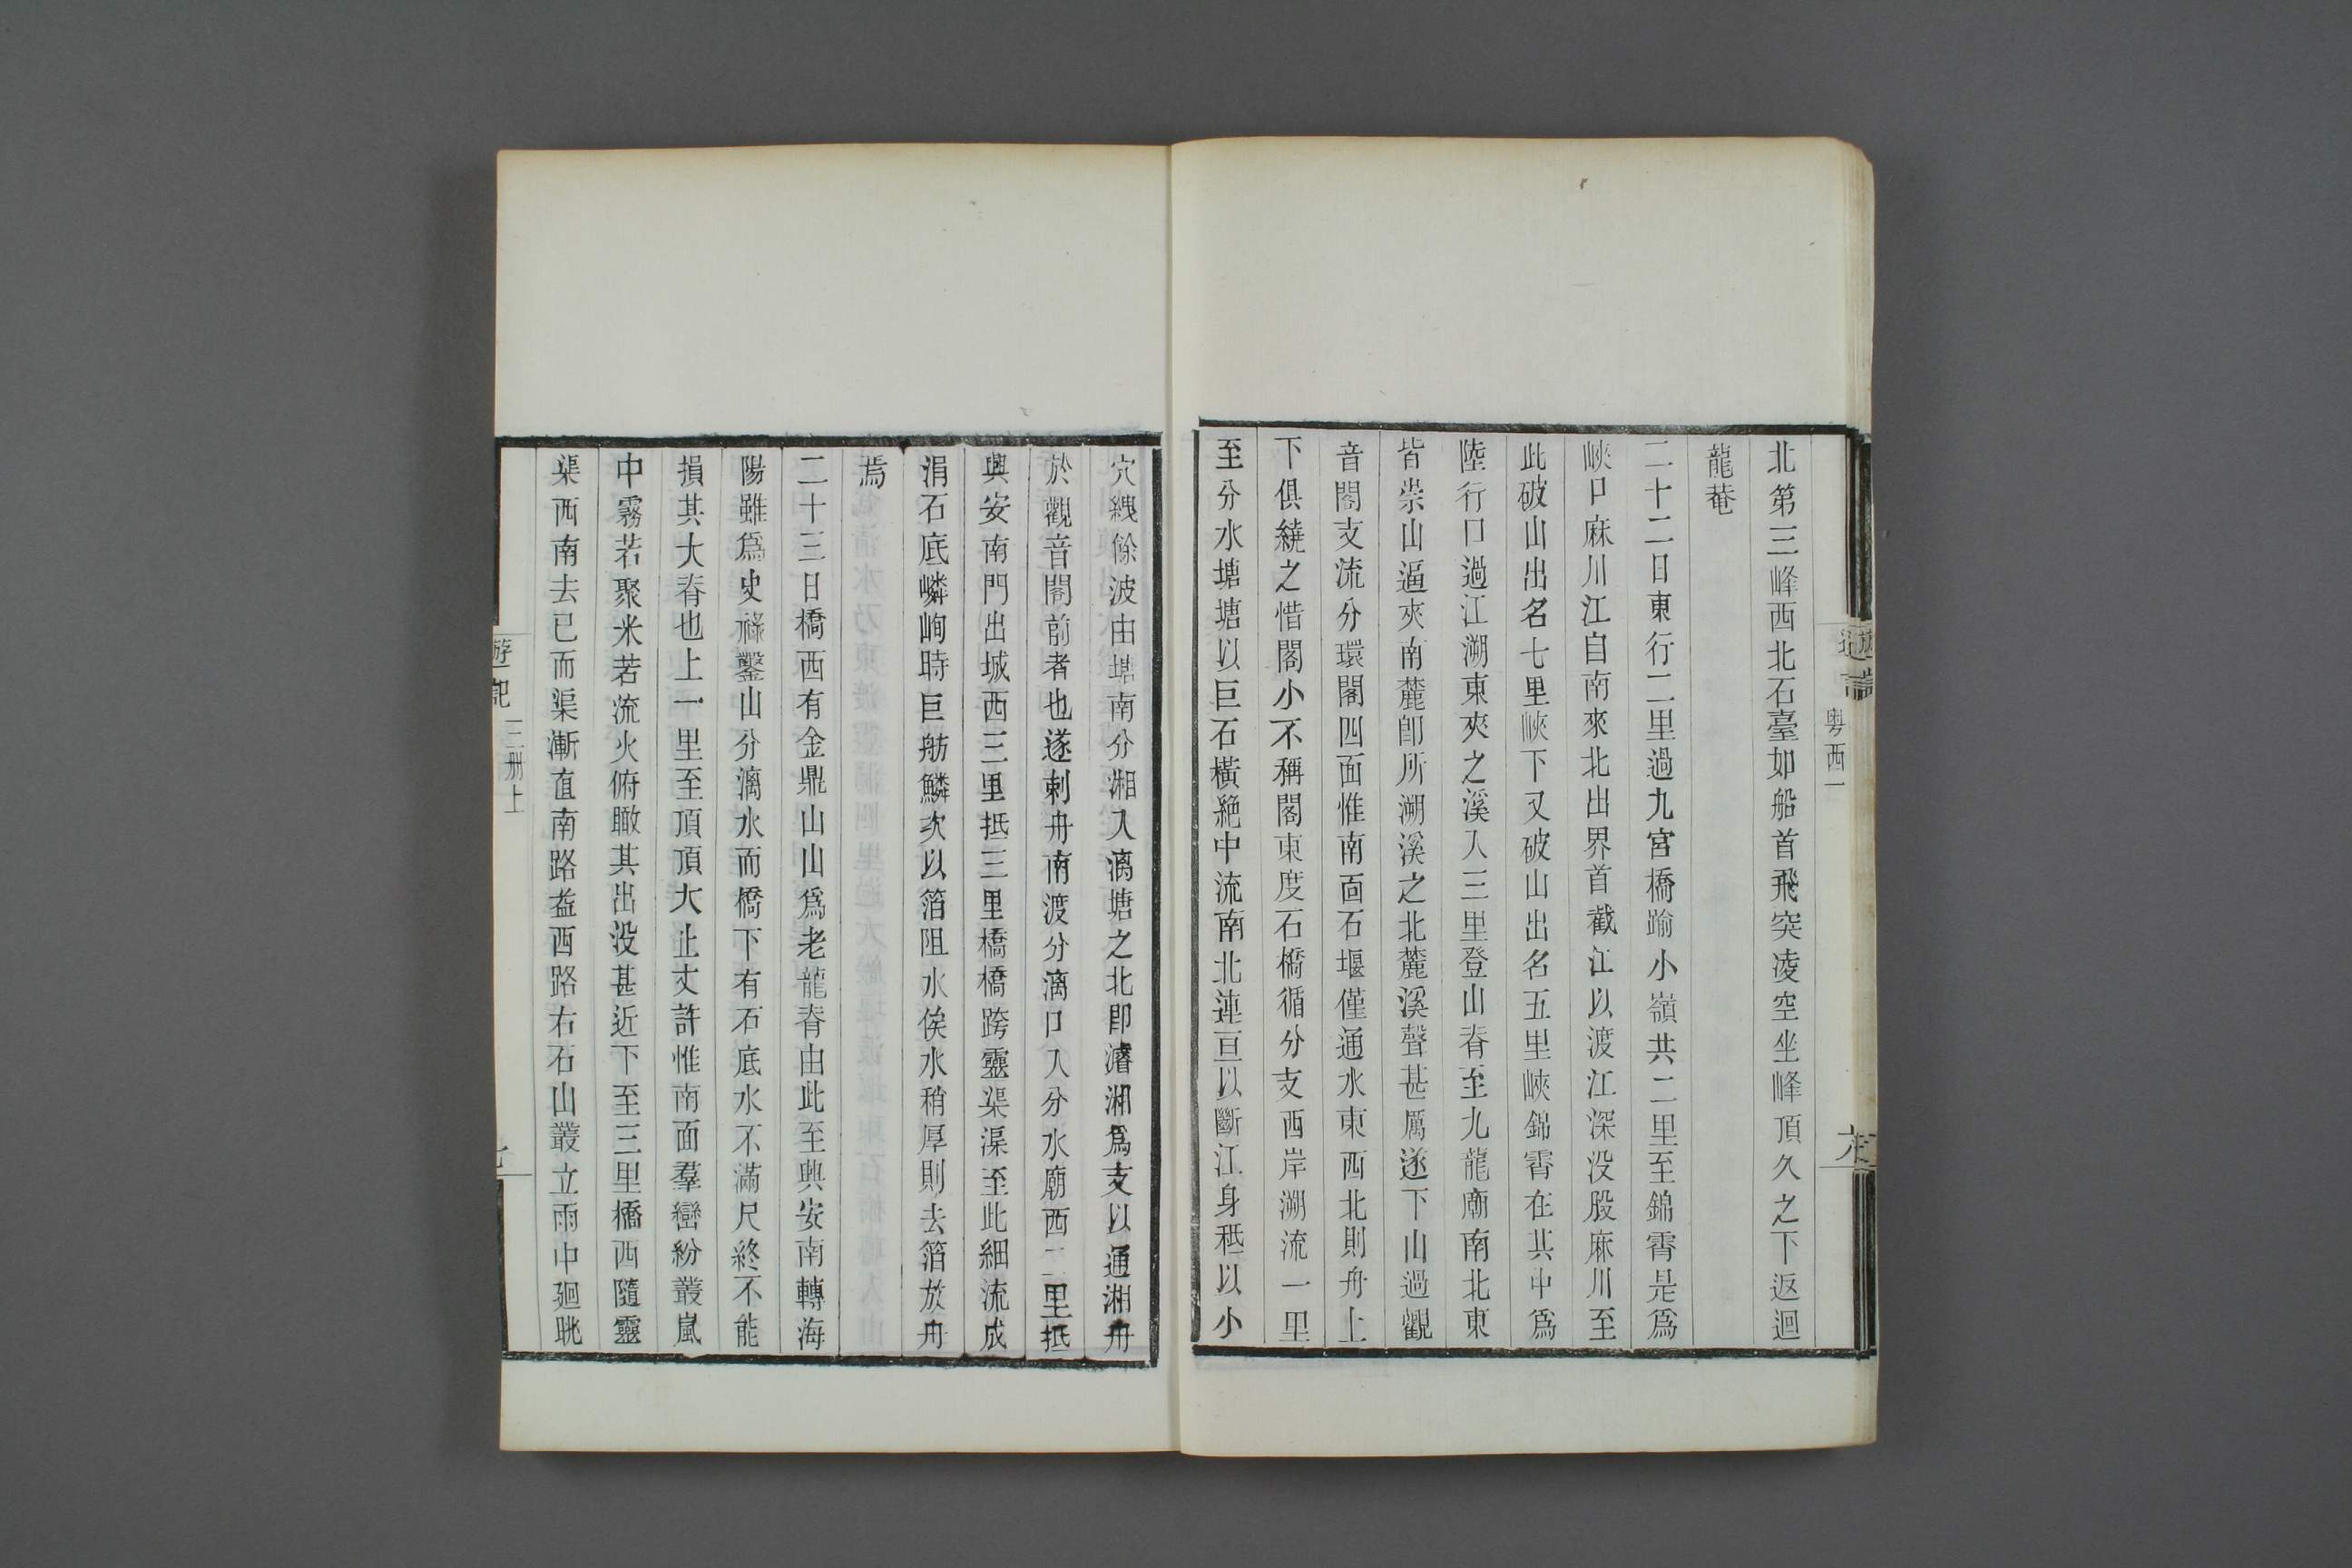 北第三峰西北石臺如船首飛突凌空坐峰頂久之下返迴
龍菴
二十二日東行二里過九宮橋踰小嶺共二里至錦霄是爲
峽口麻川江自南來北出界首截江以渡江深没股麻川至
此破山出名七里峽下又破山出名五里峽錦霄在其中爲
陸行口過江溯東夾之溪入三里登山脊至九龍廟南北東
皆崇山逼夾南麓卽所溯溪之北麓溪聲甚厲遂下山過觀
音閣支流分環閣四面惟南面石堰僅通水東西北則舟上
下俱繞之惜閣小不稱閣東度石橋循分支西岸溯流一里
至分水塘塘以巨石橫絶中流南北連亘以斷江身秪以小
穴綫餘波由塘南分湘入漓塘之北卽濬湘爲支以通湘舟
於觀音閣前者也遂剌舟南渡分漓口入分水廟西二里抵
興安南門出城西三里抵三里橋橋跨靈渠渠至此細流成
涓石底嶙峋時巨舫鱗次以箔阻水俟水稍厚則去箔放舟
焉
二十三日橋西有金鼎山山爲老龍脊由此至興安南轉海
陽雖爲史祿鑿山分漓水而橋下有石底水不滿尺終不能
損其大脊也上一里至頂頂大止丈許惟南面羣巒紛叢嵐
中霧若聚米若流火俯瞰其出没甚近下至三里橋西隨靈
渠西南去已而渠漸直南路益西路右石山叢立雨中廻眺
粤西一
游記
三册上